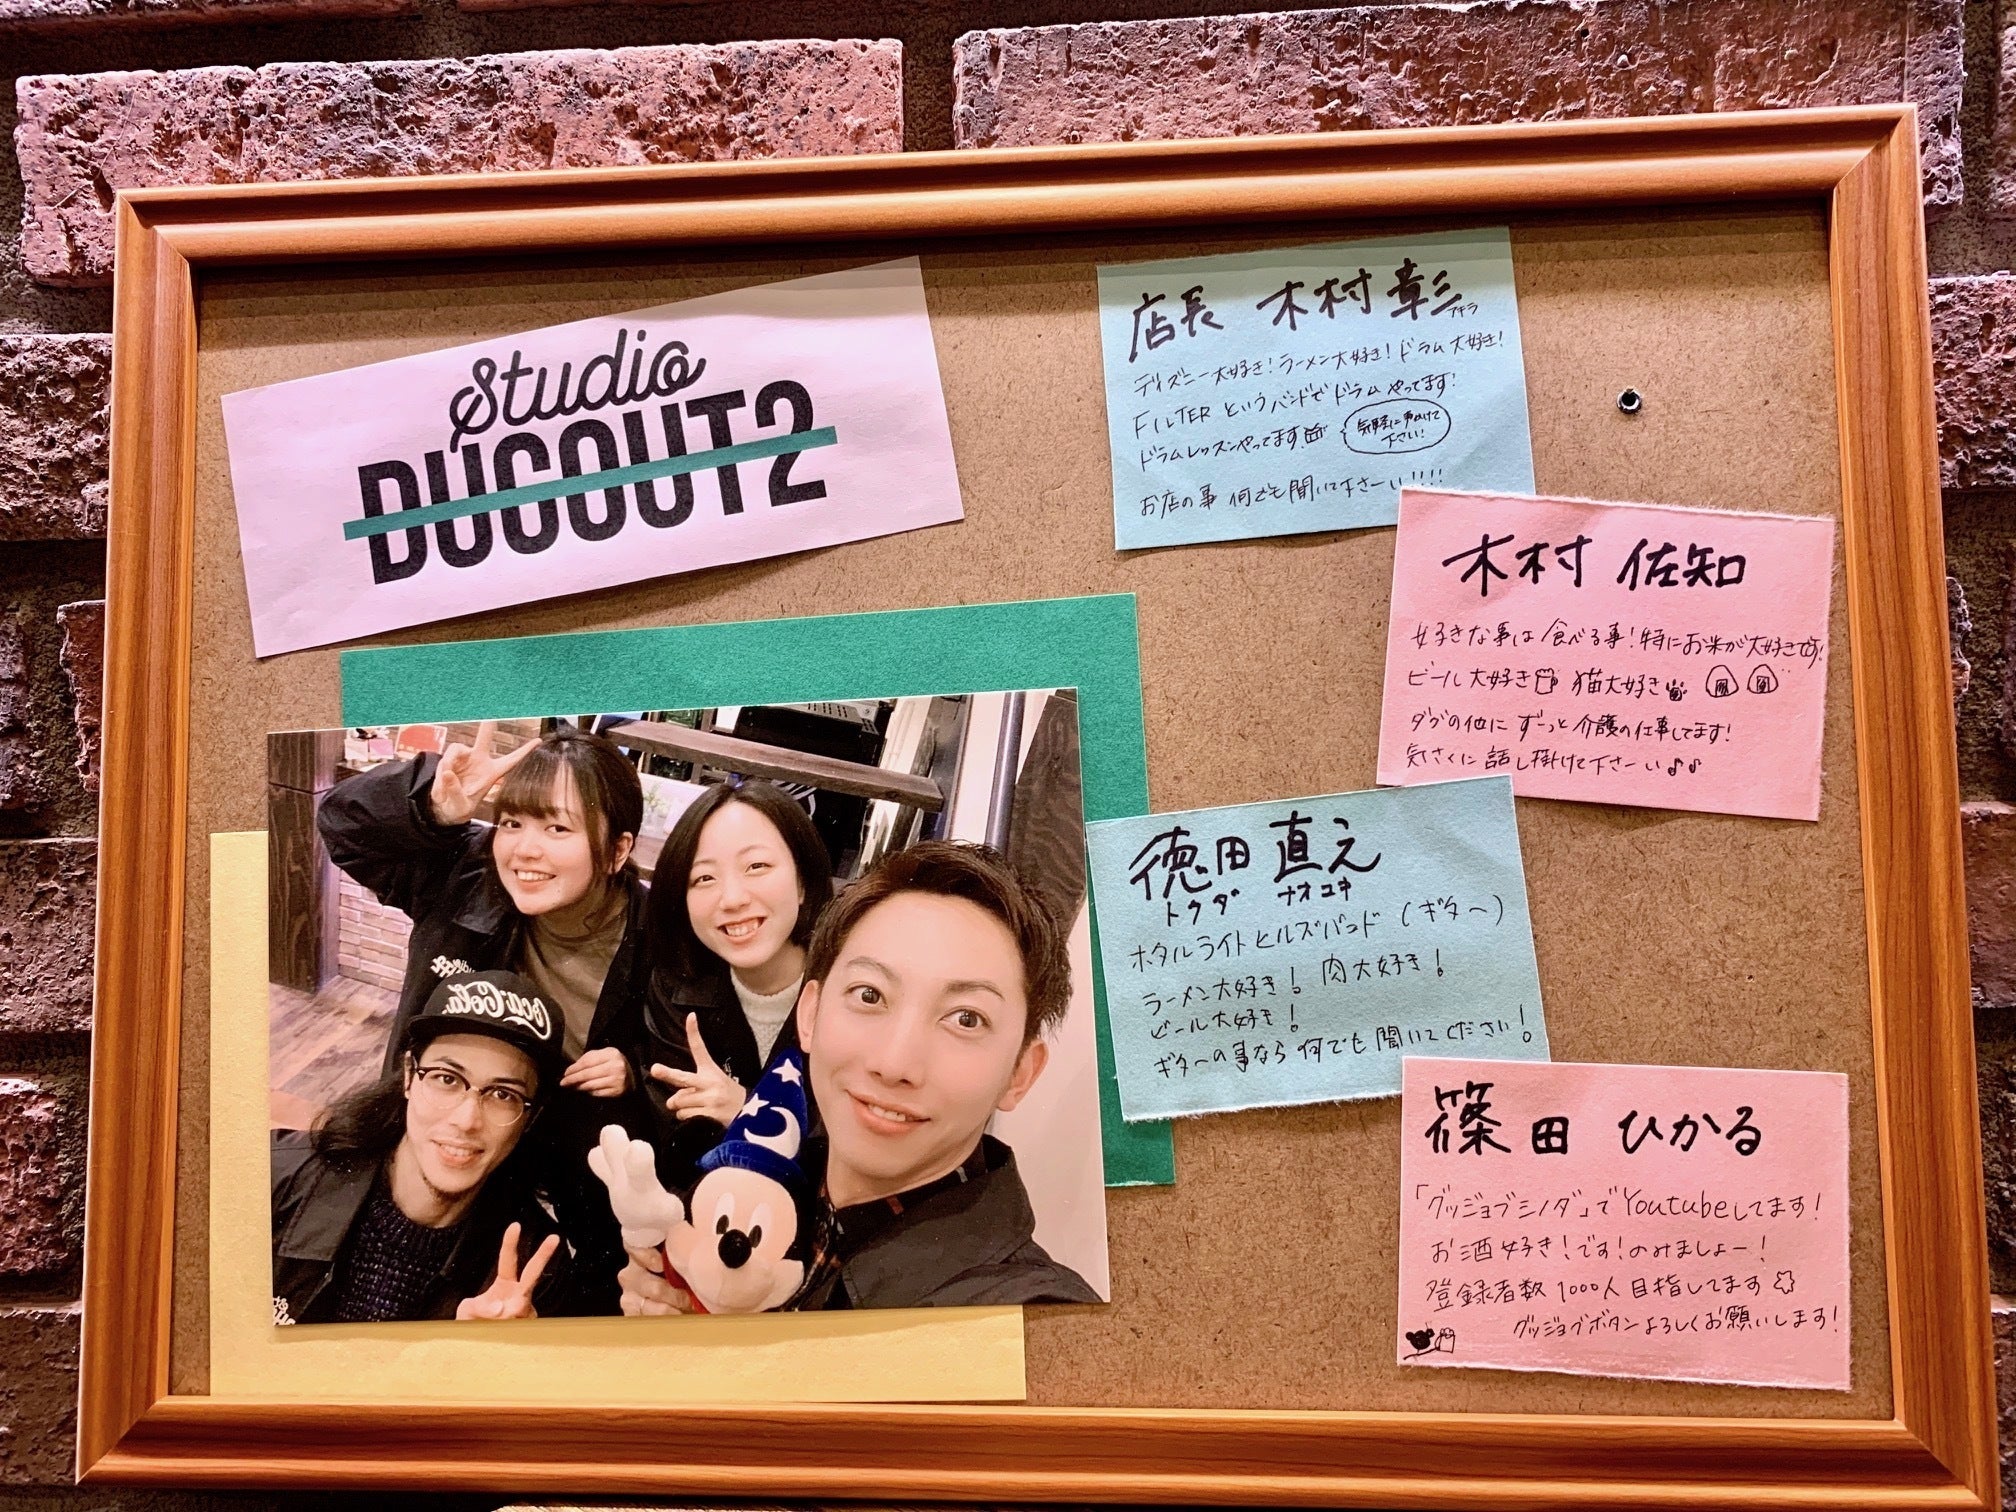 Studio
DUGOUT2
店長 木村 彰
アキラ
ディズニー大好き!ラーメン大好き!ドラム大好き!
FILTER というバンドでドラムやってます!
ドラムレッスンやってます
気軽に声かけて
下さい!
お店の事 何でも聞いて下さーい!!!!
木村 佐知
好きな事は食べる事!特にお米が大好きです!
ビール大好き 猫大好き
ダグの他にずーっと介護の仕事してます!
気さくに話し掛けて下さーい♪♪
徳田 直之
トクダ ナオユキ
ホタルライトヒルズバンド(ギター)
ラーメン大好き! 肉大好き!
ビール大好き!
ギターの事なら何でも聞いてください!
篠田 ひかる
「グッジョブシノダ」でYoutubeしてます!
お酒好き!です!のみましょー!
登録者数1000人目指してます
グッジョブボタンよろしくお願いします!
Coca-Cola